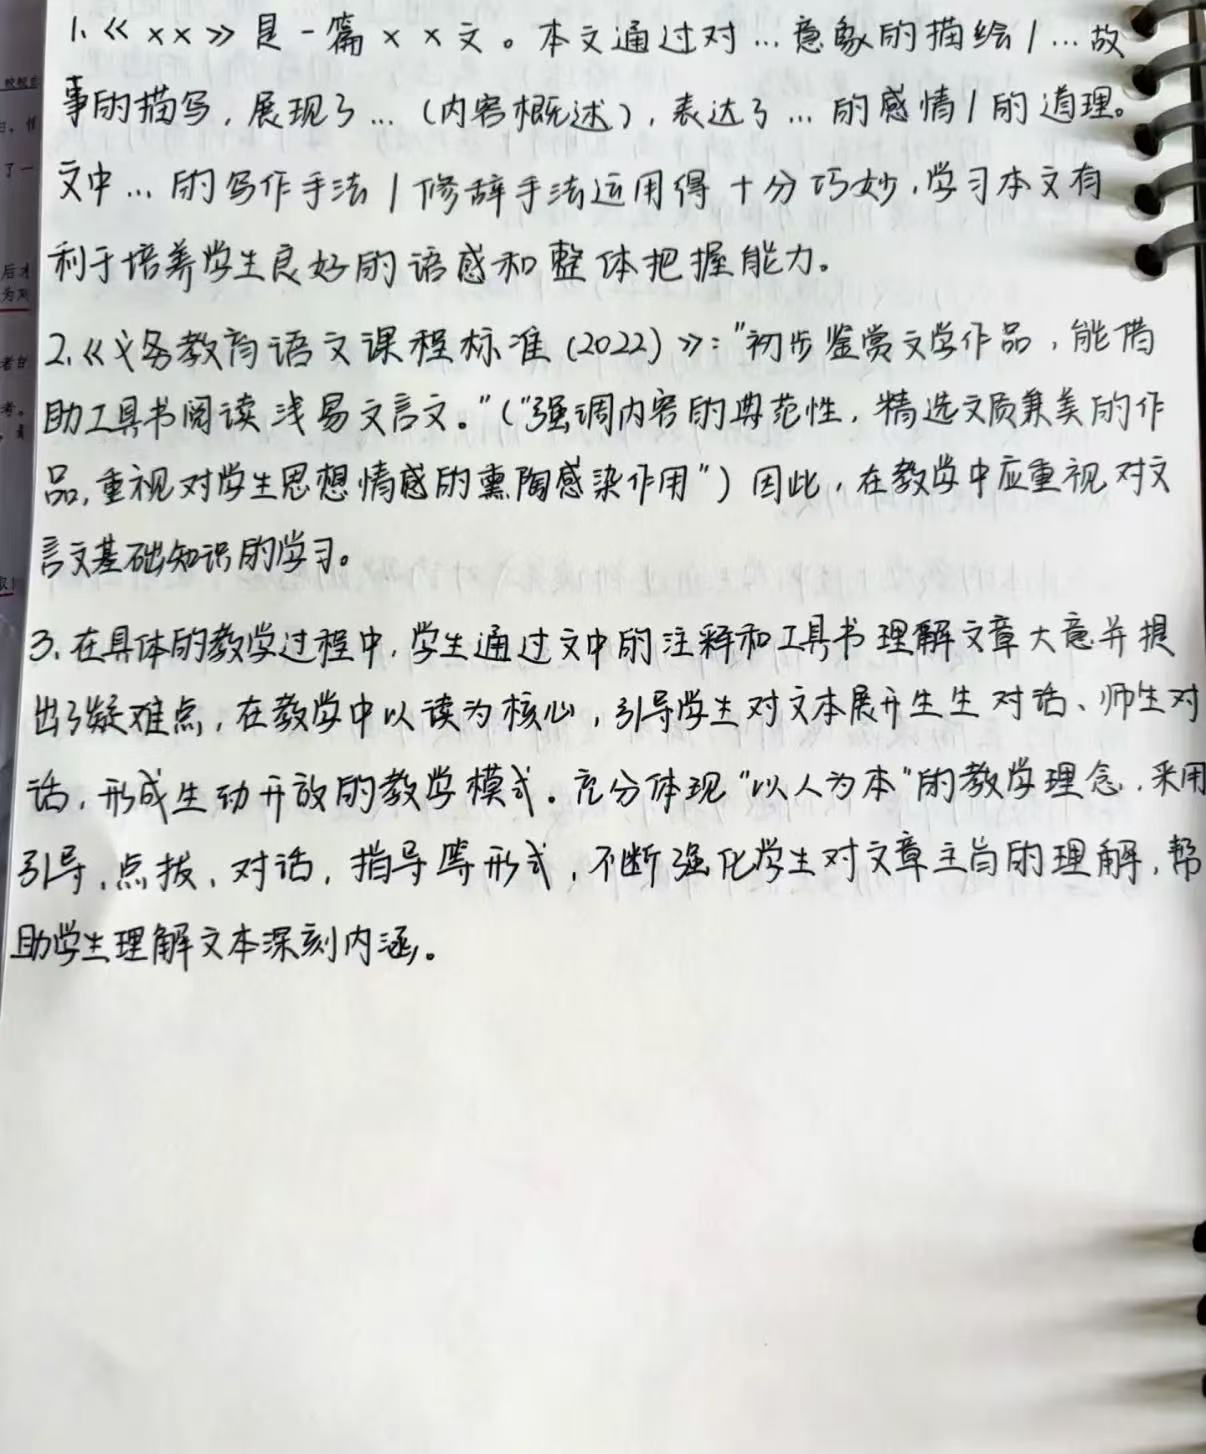 1.《××》是一篇××文。本文通过对…意象的描绘/…故
事的描写,展现了…(内容概述),表达了…的感情/的道理。
文中…的写作手法/修辞手法运用得十分巧妙,学习本文有
利于培养学生良好的语感和整体把握能力。
2.《义务教育语文课程标准(2022)》:"初步鉴赏文学作品,能借
助工具书阅读浅易文言文。"("强调内容的典范性,精选文质兼美的作
品,重视对学生思想情感的熏陶感染作用")因此,在教学中应重视对文
言文基础知识的学习。
3.在具体的教学过程中,学生通过文中的注释和工具书理解文章大意并提
出了疑难点,在教学中以读为核心,引导学生对文本展开生生对话、师生对
话,形成生动开放的教学模式。充分体现"以人为本"的教学理念,采用
引导、点拨、对话,指导等形式,不断强化学生对文章主旨的理解,帮
助学生理解文本深刻内涵。